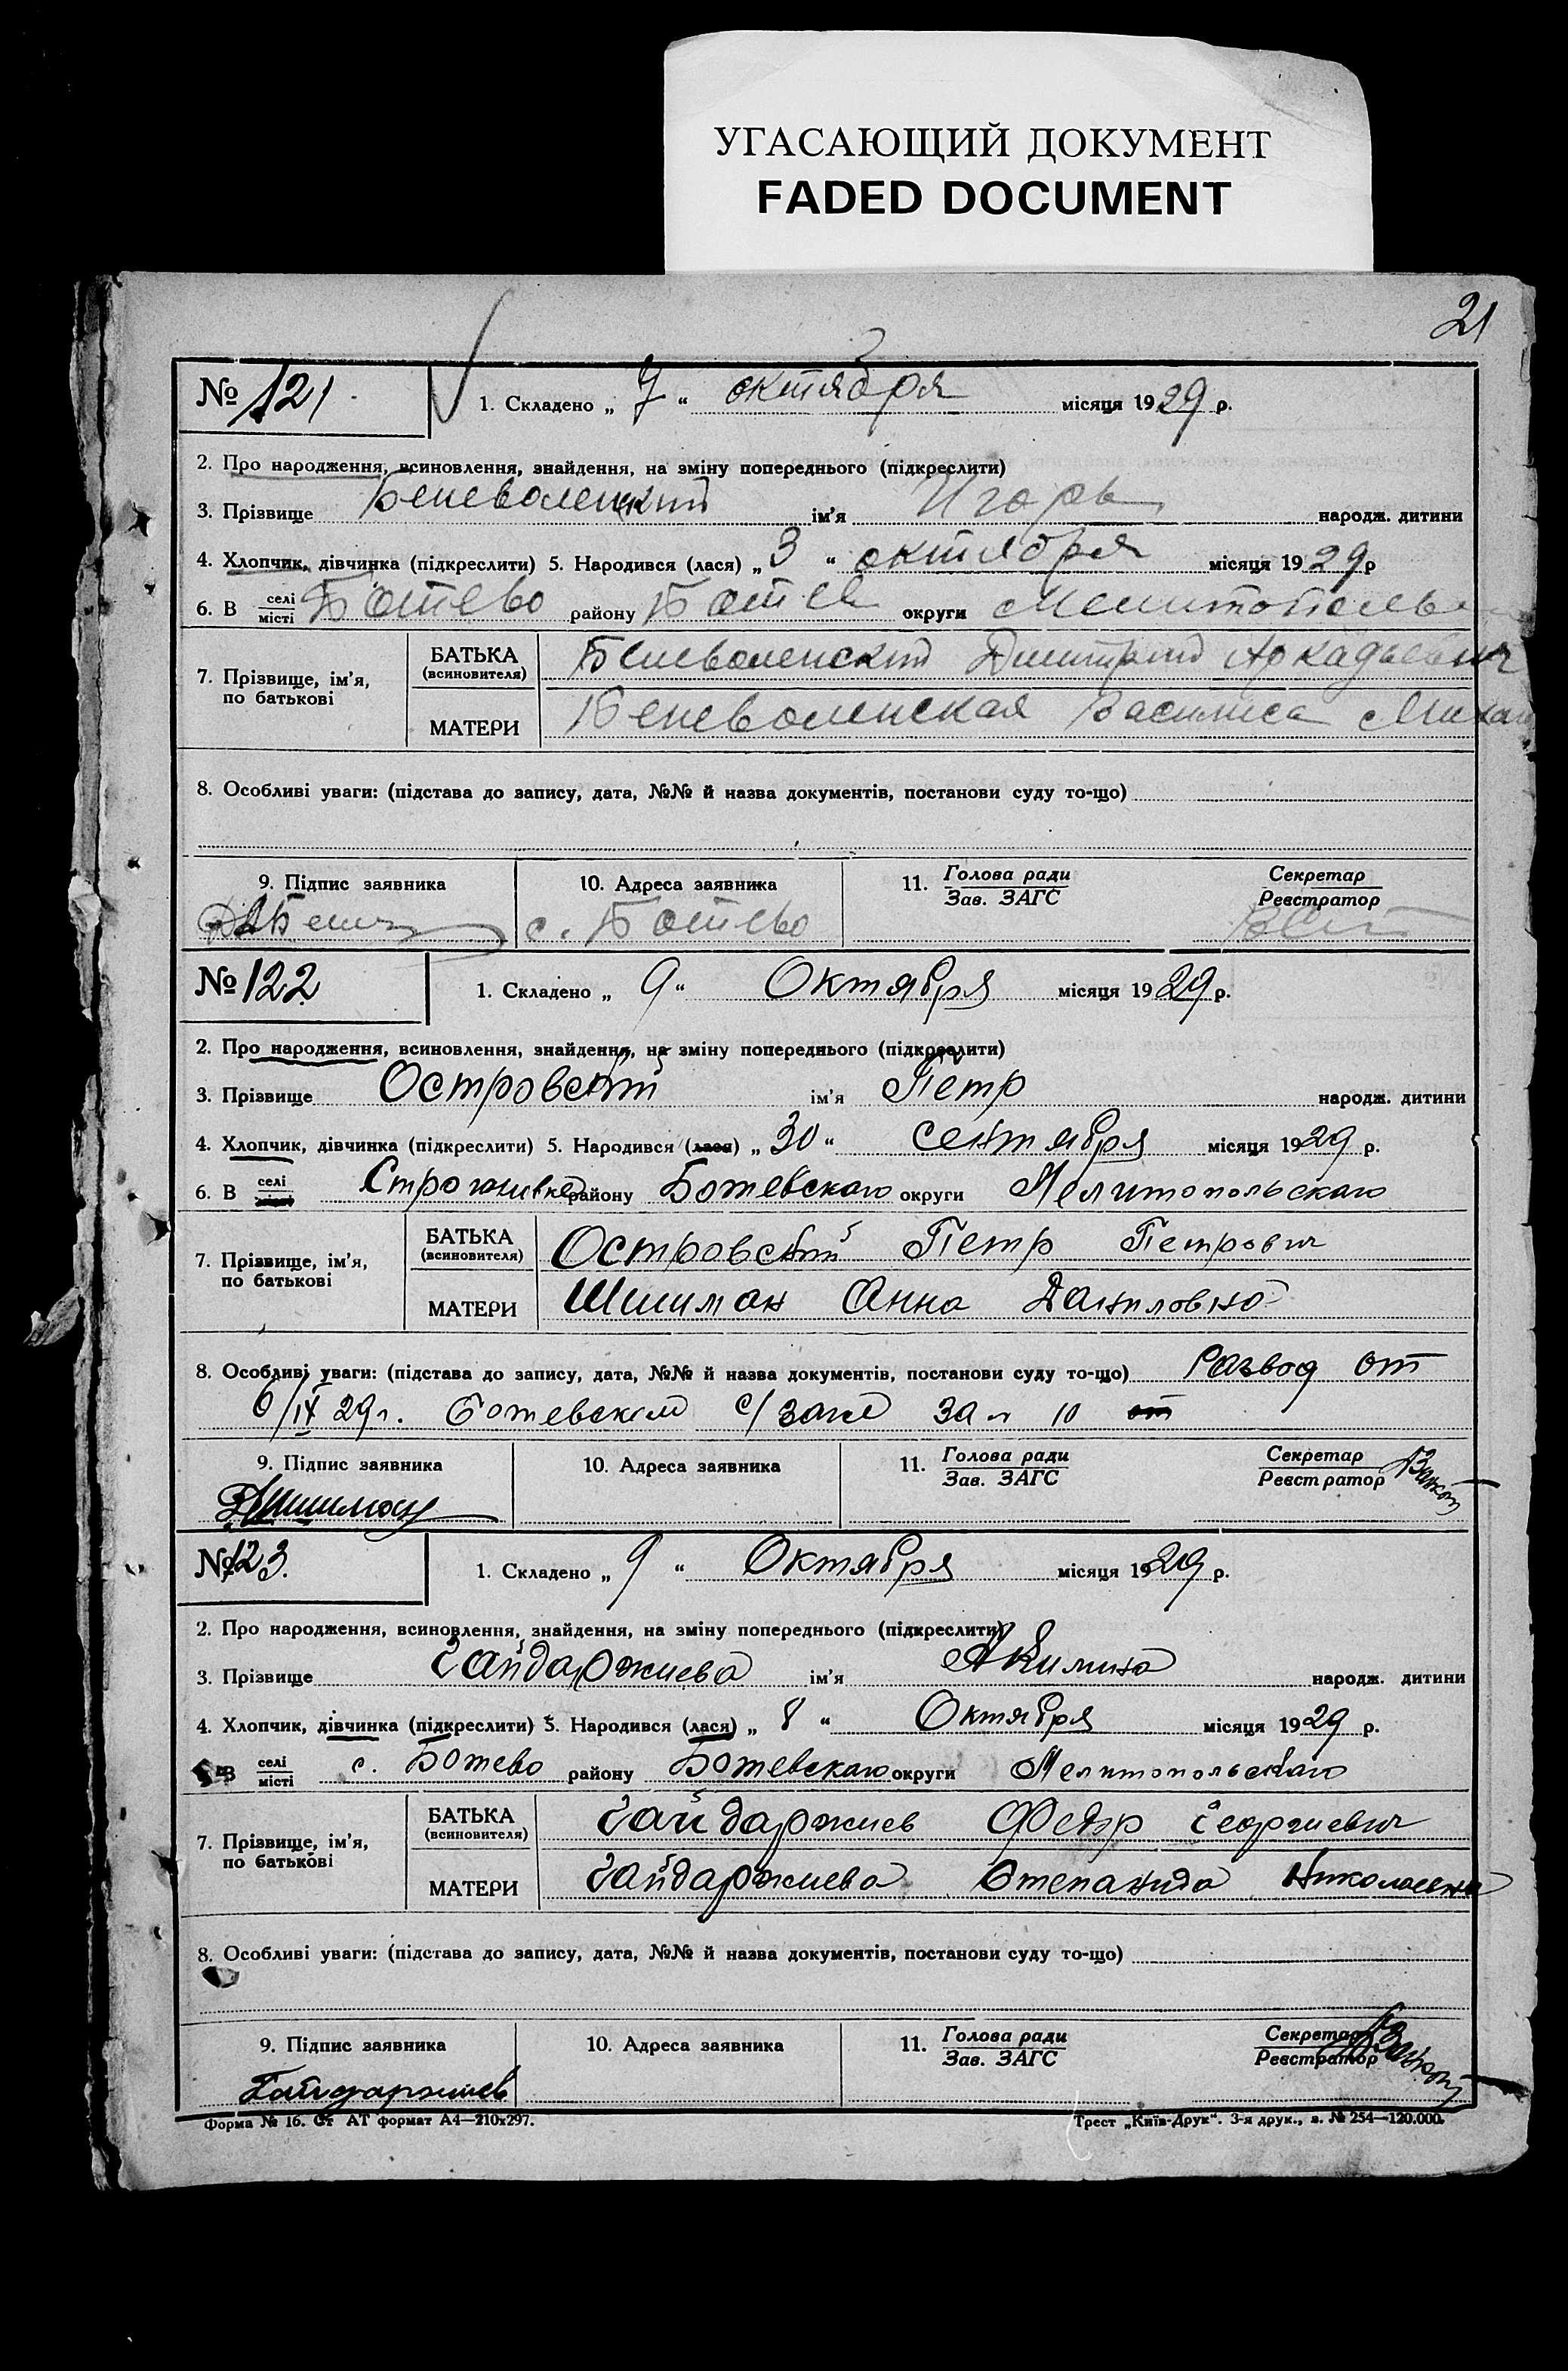 УГАСАЮЩИЙ ДОКУМЕНТ
FADED DOCUMENT
21
№ 121 1. Складено „ 7 “ октября місяця 1929 р.
2. Про народження, всиновлення, знайдення, на зміну попереднього (підкреслити)
3. Прізвище Беневоленский ім'я Игорь народж. дитини
4. Хлопчик, дівчинка (підкреслити) 5. Народився (лася) „ 3 “ октября місяця 1929 р
6. В селі місті Ботево району Ботев округи Мелитополь
7. Прізвище, ім'я, по батькові
БАТЬКА (всиновителя) Беневоленский Димитрий Аркадьевич
МАТЕРИ Беневоленская Василиса Михай
8. Особливі уваги: (підстава до запису, дата, №№ й назва документів, постанови суду то-що)
9. Підпис заявника 10. Адреса заявника 11. Голова ради Зав. ЗАГС Секретар Реєстратор
с. Ботево
№ 122 1. Складено „ 9 “ Октября місяця 1929 р.
2. Про народження, всиновлення, знайдення, на зміну попереднього (підкреслити)
3. Прізвище Островский ім'я Петр народж. дитини
4. Хлопчик, дівчинка (підкреслити) 5. Народився (лася) „ 30 “ сентября місяця 1929 р.
6. В селі місті Строгоновка району Ботевского округи Мелитопольского
7. Прізвище, ім'я, по батькові
БАТЬКА (всиновителя) Островский Петр Петрович
МАТЕРИ Шишман Анна Даниловна
8. Особливі уваги: (підстава до запису, дата, №№ й назва документів, постанови суду то-що) Развод от
6/IX 29 г. Ботевским с/ загс за № 10 от
9. Підпис заявника 10. Адреса заявника 11. Голова ради Зав. ЗАГС Секретар Реєстратор
Шишман
№ 123. 1. Складено „ 9 “ Октября місяця 1929 р.
2. Про народження, всиновлення, знайдення, на зміну попереднього (підкреслити)
3. Прізвище Гайдаржиева ім'я Акилина народж. дитини
4. Хлопчик, дівчинка (підкреслити) 5. Народився (лася) „ 8 “ Октября місяця 1929 р.
6. В селі місті с. Ботево району Ботевского округи Мелитопольского
7. Прізвище, ім'я, по батькові
БАТЬКА (всиновителя) Гайдаржиев Федор Георгиевич
МАТЕРИ Гайдаржиева Степанида Николаевна
8. Особливі уваги: (підстава до запису, дата, №№ й назва документів, постанови суду то-що)
9. Підпис заявника 10. Адреса заявника 11. Голова ради Зав. ЗАГС Секретар Реєстратор
Гайдаржиев
Форма № 16. Ст АТ формат А4—210x297. Трест „Київ-Друк“. 3-я друк., з. № 254—120.000.